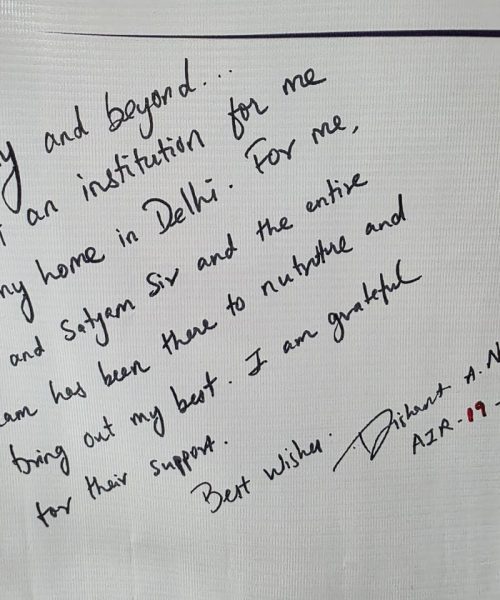 y and beyond...
an institution for me
my home in Delhi. For me,
and Satyam Sir and the entire
eam has been there to nutrture and
bring out my best. I am grateful
for their support.
Best Wishes.
Dishant A. N
AIR-19-